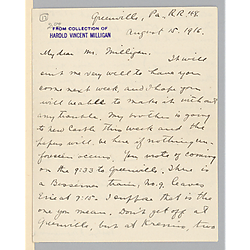 Greenville, Pa. R.R. 48.
FROM COLLECTION OF
HAROLD VINCENT MILLIGAN
August 15. 1916.
My dear Mr. Milligan.
It will
suit me very well to have you
come next week, and I hope you
will be able to make it without
any trouble. My brother is going
to New Castle this week and the
papers will be here if nothing un-
foreseen occurs. You wrote of coming
on the 9:33 to Greenville. There is
a Bessemer train, No. 9, leaves
Erie at 7:15. I suppose that is the
one you mean. Don't get off at
Greenville, but at Kremis, two